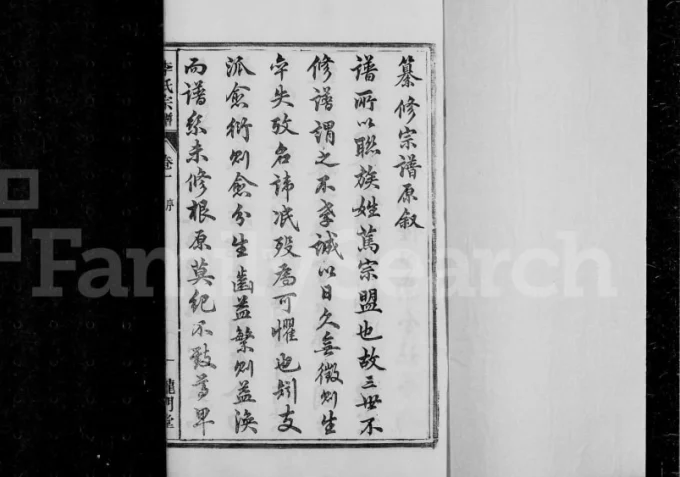 纂修宗譜原叙
譜所以聯族姓篤宗盟也故三世不
修譜謂之不孝誠以日久無徵則生
卒失攷名諱冺殁為可懼也矧支
派愈衍則愈分生齒益繁則益渙
而譜系未修根原莫紀不致尊卑
李氏宗譜
卷一
序
一
龍門堂
FamilySearch